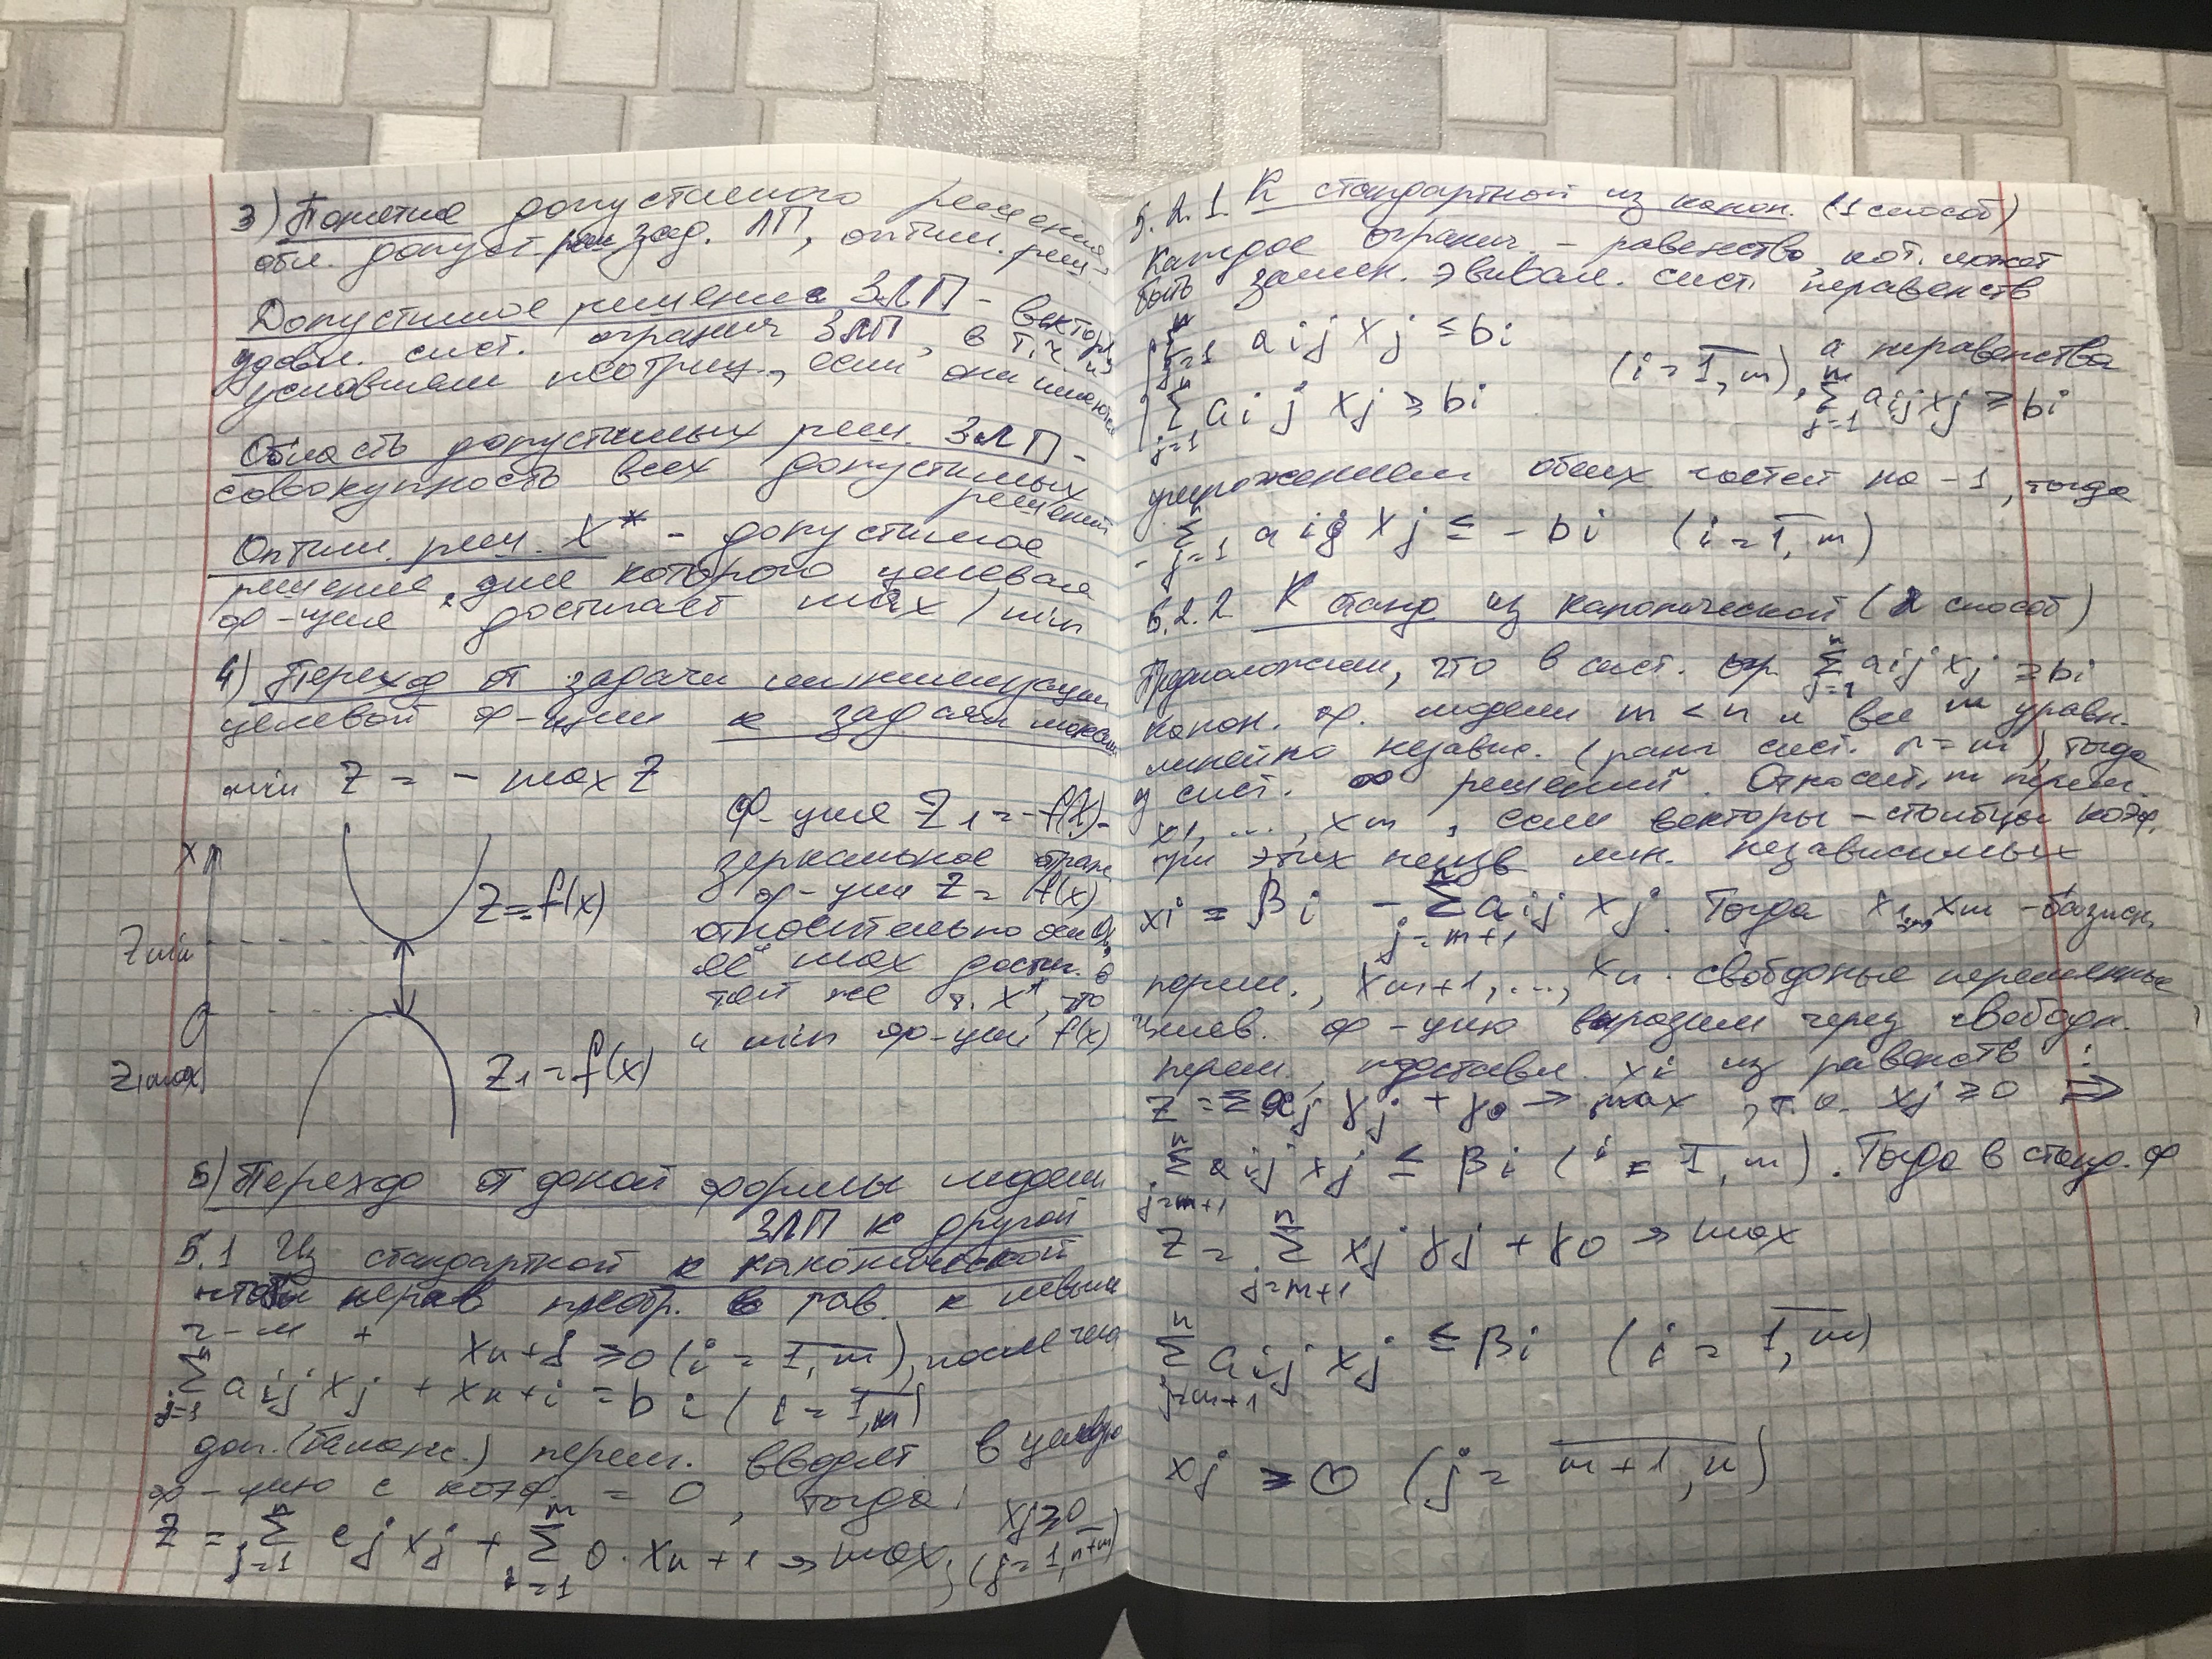 3) Понятие допустимого решения,
обл. допуст. реш. зад. ЛП, оптим. реш.
Допустимое решение ЗЛП - вектор,
удовл. сист. огранич ЗЛП в т.ч. и
условиям неотриц,
Область допустимых реш. ЗЛП -
совокупность всех допустимых решений
Оптим. реш. X* - допустимое
решение, для которого целевая
ф-ция достигает max / min
4) Переход от задачи минимизации
целевой ф-ции к задаче макс
min Z = - max Z
X
Z min
Z max
Z = f(x)
Z1 = -f(x)
Ф-ция Z1 = -f(x) -
зеркальное отраж
ф-ции Z = f(x)
относительно оси
её max достиг. в
той же т. x*, что
и min ф-ции f(x)
5) Переход от одной формы модели
ЗЛП к другой
5.1 Из стандартной к канонической
n - m +
xn + i ≥ 0 (i = 1, m), после чего
n Σ j=1 aij xj + xn + i = bi (i = 1, m)
доп. (баланс.) перем. вводят в целев
ф-цию с коэф. = 0, тогда: xj ≥ 0
Z = n Σ j=1 cj xj + m Σ i=1 0 · xn + i → max, (j = 1, n+m)
5.2.1 К стандартной из канон. (1 способ)
Каждое огранич - равенство кот. может
быть замен. эквивал. сист. неравенств
n Σ j=1 aij xj ≤ bi
n Σ j=1 aij xj ≥ bi
(i = 1, m), а неравенства n Σ j=1 aij xj ≥ bi
умножением обоих частей на -1, тогда
- n Σ j=1 aij xj ≤ - bi (i = 1, m)
5.2.2 К станд из канонической (2 способ)
Предположим, что в сист. огр n Σ j=1 aij xj = bi
канон. ф. модели m < n и все m уравн.
линейно независ. (ранг сист. r = m), тогда
у сист. ∞ решений. Относит. m перемен
x1 ... xm, если векторы - столбцы коэф.
при этих неизв лин. независимых
xi = βi - n Σ j=m+1 αij xj. Тогда x1, ..., xm - базисн.
перем., xm+1, ..., xn. свободные переменные
целев. ф-цию выразим через свободн.
перем. подставив. xi из равенств:
Z = Σ γj xj + γ0 → max, т.к. xj ≥ 0 ⇒
n Σ j=m+1 αij xj ≤ βi (i = 1, m). Тогда в станд. ф
Z = n Σ j=m+1 xj γj + γ0 → max
n Σ j=m+1 αij xj ≤ βi (i = 1, m)
xj ≥ 0 (j = m+1, n)